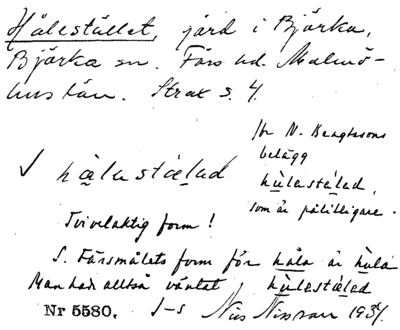 Hålestället, gård i Bjärka,
Bjärka sn. Färs hd. Malmö-
hus län. Strax s. 4.
hålastálad
Jfr N. Bengtssons
belägg
hùlastálad,
som är pålitligare.
Tvivelaktig form!
S. Färsmålets form för håla är hùla
Man hade alltså väntat hùlastálad
Nr 5580. I-s Nils Nilsson 1934.